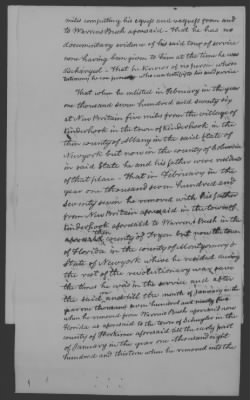 miles computing his egress and regress from and
to Warrens Bush aforesaid - That he has no
documentary evidence of his said tour of service
none having been given to him at the time he was
discharged - That he knows of no person whose
testimony he can procure who can testify to his said service
That when he enlisted in February in the year
one thousand seven hundred and seventy six
at New Britain five miles from the village of
Kinderhook in the town of Kinderhook in the
then county of Albany in the said State of
Newyork but now in the county of Columbia
in said State he and his father were residents
of that place - That in February in the
year one thousand seven hundred and
seventy seven he removed with his father
from New Britain aforesaid in the town of
Kinderhook aforesaid to Warrens Bush in the
then county of Tryon but now the town
of Florida in the county of Montgomery &
State of Newyork where he resided during
the rest of the revolutionary war save
the time he was in the service and after
the said war and till the month of January in the
year one thousand seven hundred and ninety five
when he removed from Warrens Bush aforesaid now
Florida as aforesaid to the town of Schuyler in the
county of Herkimer aforesaid till the early part
of January in the year one thousand eight
hundred and thirteen when he removed into the